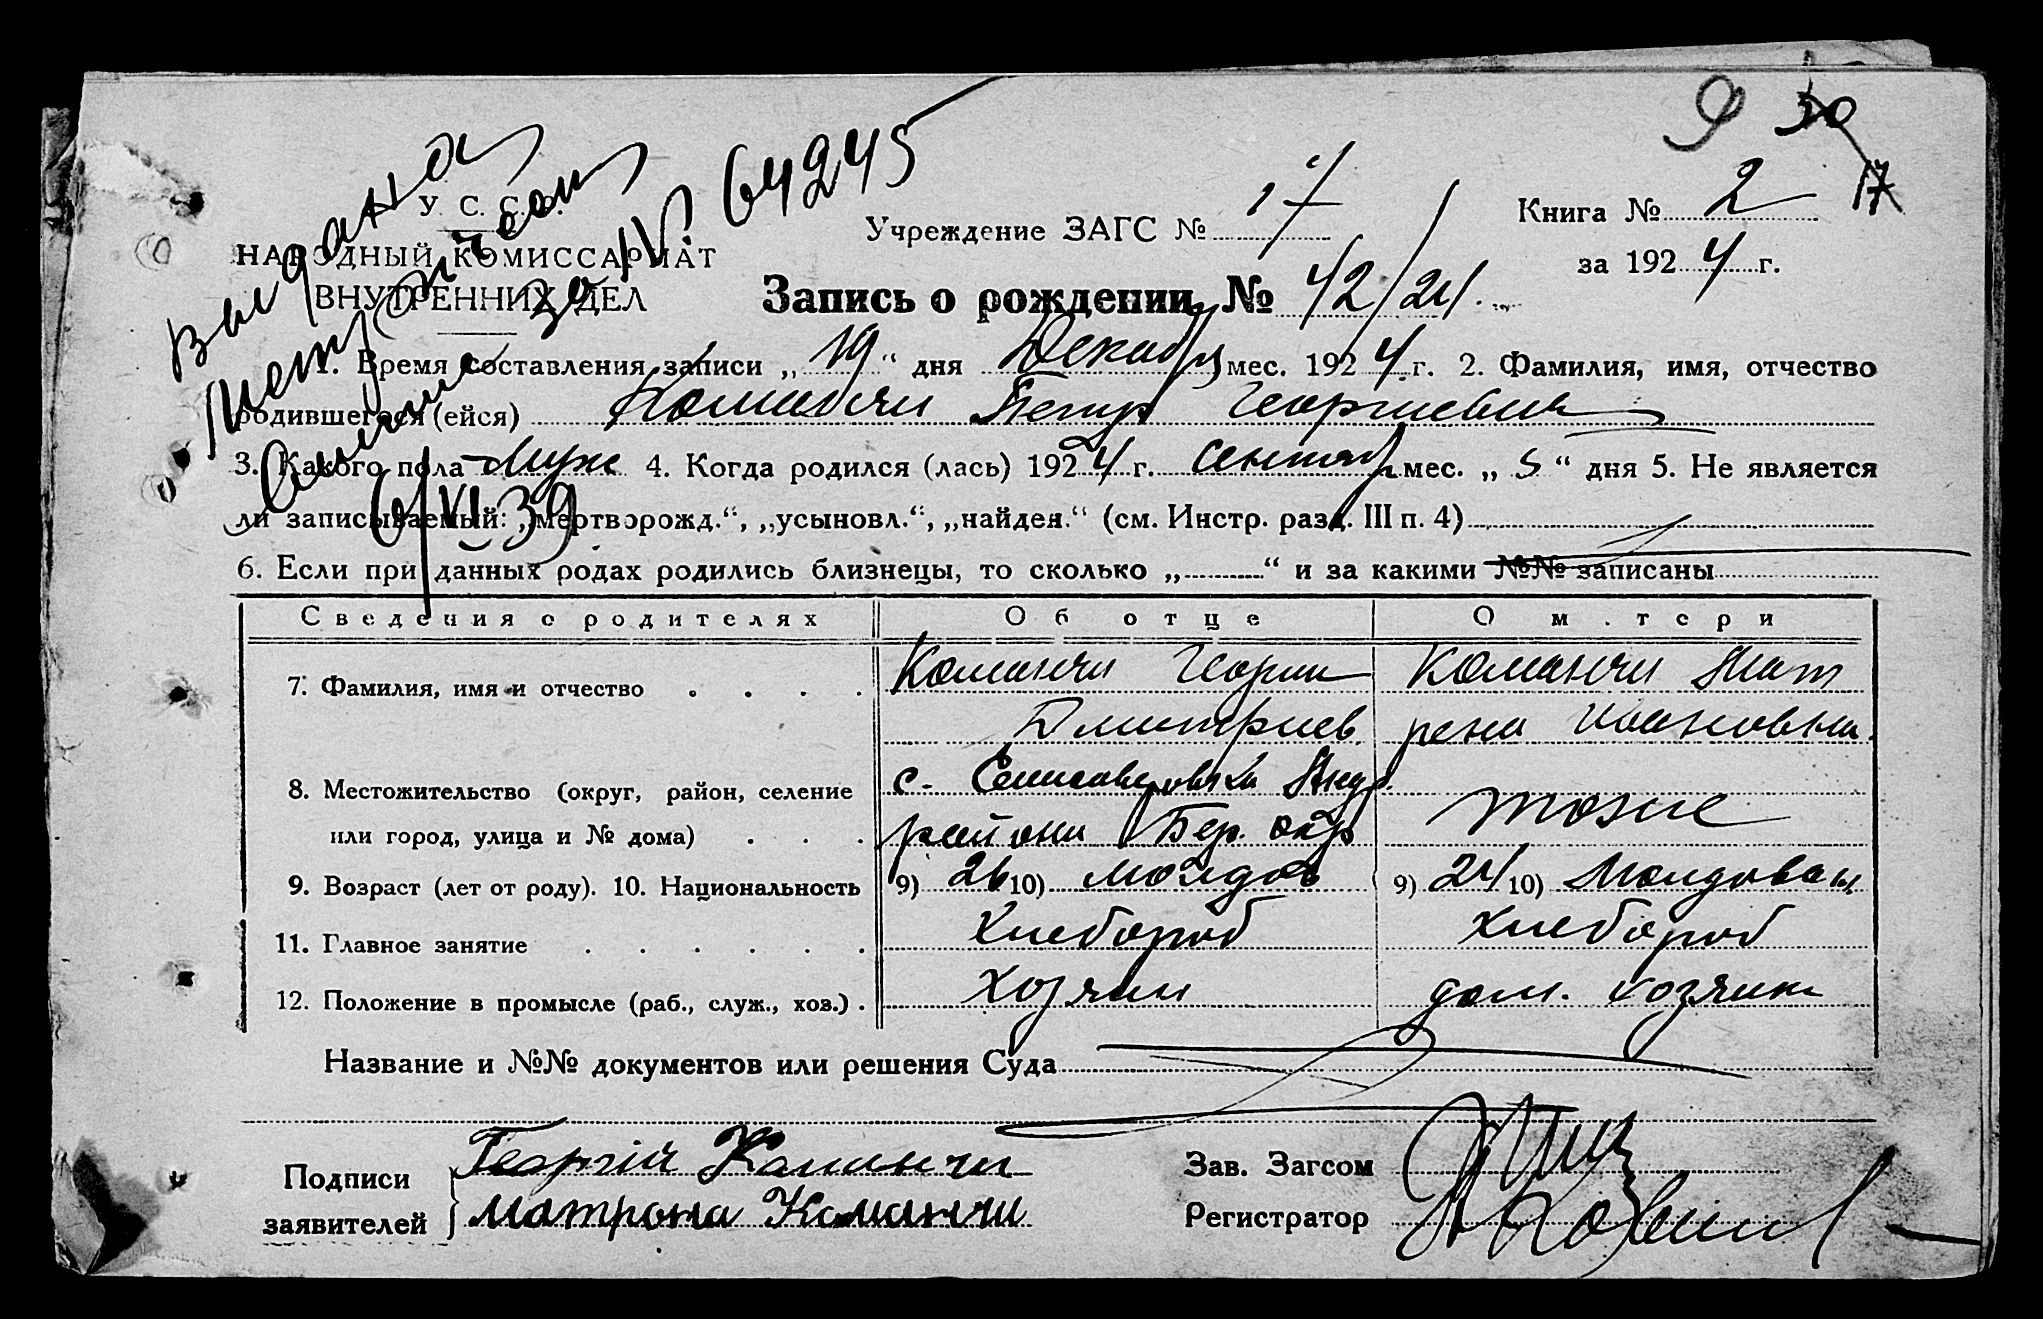 9 30
17
Выдана
метрическ
выпись
за № 64245
6/VI 39
У. С. С. Р.
НАРОДНЫЙ КОМИССАРИАТ
ВНУТРЕННИХ ДЕЛ
Учреждение ЗАГС № 17
Книга № 2
за 1924 г.
Запись о рождении № 42/24.
1. Время составления записи „19“ дня Декабр мес. 1924 г. 2. Фамилия, имя, отчество
родившегося (ейся) Команчи Петр Георгиевич
3. Какого пола Муж 4. Когда родился (лась) 1924 г. сентяб мес. „5“ дня 5. Не является
ли записываемый: „мертворожд.“, „усыновл.“, „найден.“ (см. Инстр. разд. III п. 4)
6. Если при данных родах родились близнецы, то сколько „ “ и за какими №№ записаны
Сведения о родителях Об отце О м.тери
7. Фамилия, имя и отчество Команчи Георги Команчи Мат
Дмитриев. рена Ивановна.
8. Местожительство (округ, район, селение с.
или город, улица и № дома) района Бер. окр тоже
9. Возраст (лет от роду). 10. Национальность 9) 26 10) молдов 9) 24 10) Молдован.
11. Главное занятие Хлебороб Хлебороб
12. Положение в промысле (раб., служ., хоз.) Хозяин дом. хозяин
Название и №№ документов или решения Суда
Подписи Георгій Команчи Зав. Загсом
заявителей Матрона Команчи Регистратор